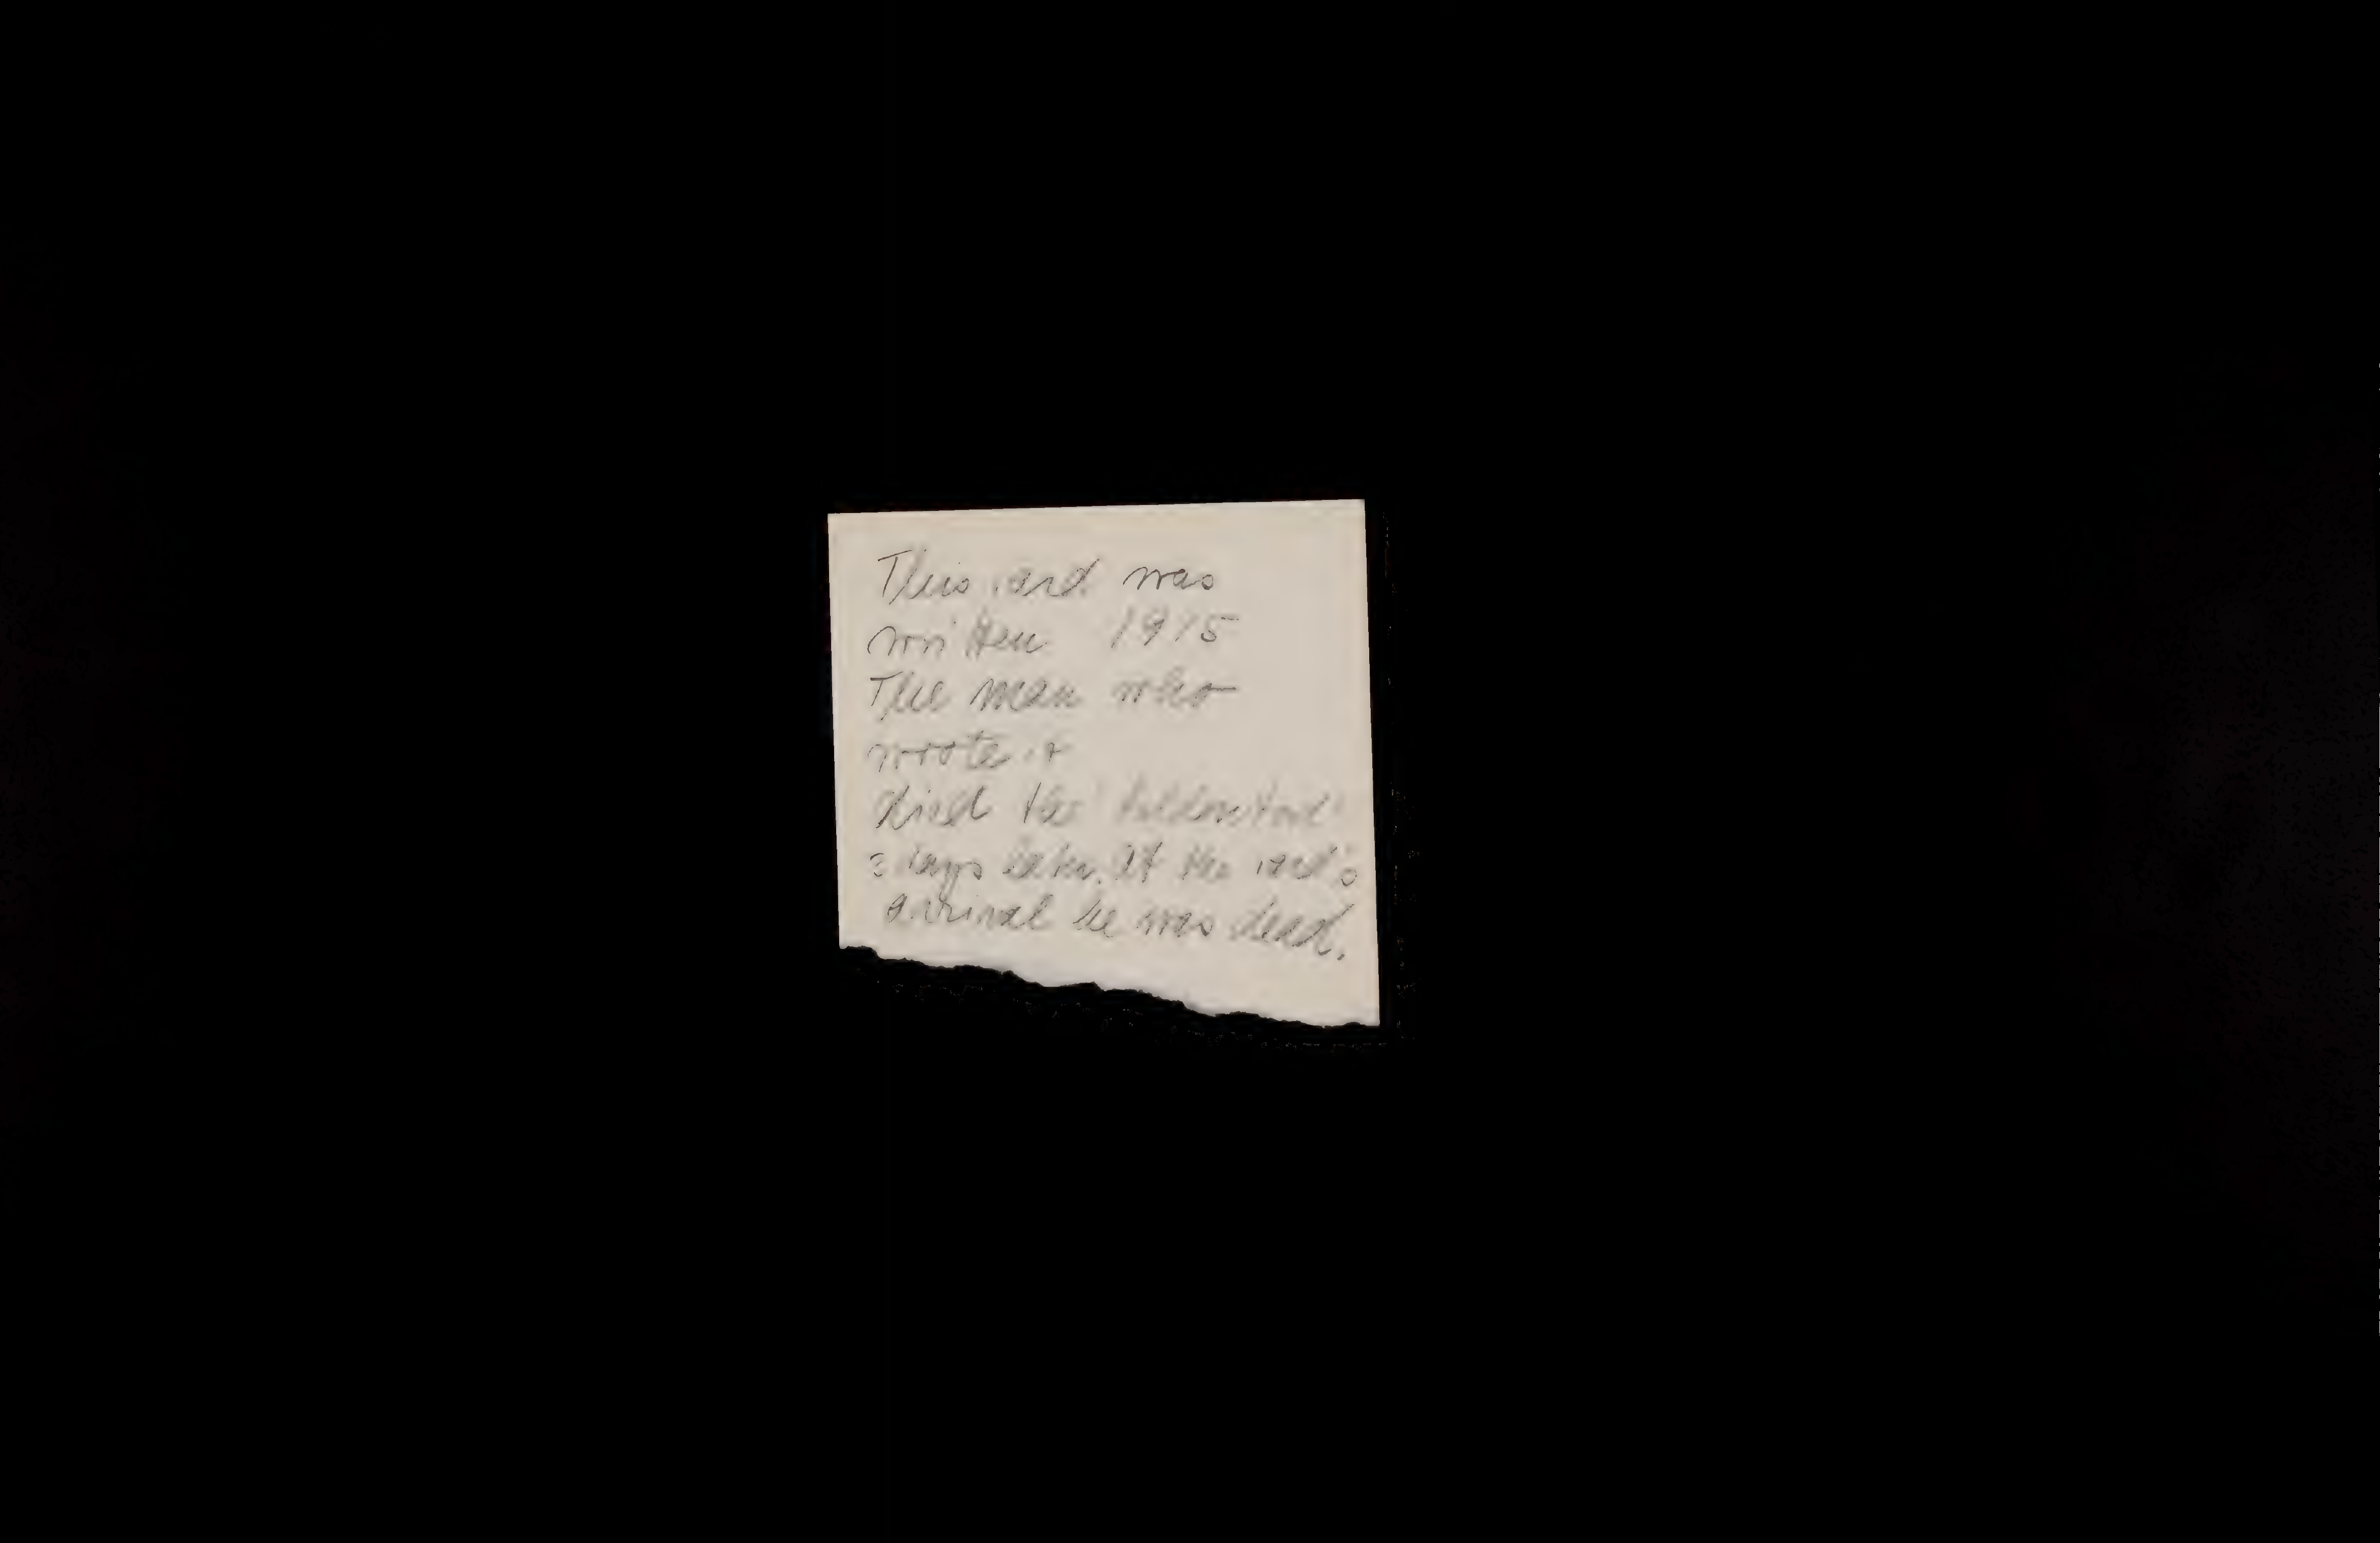 This card was
written 1915
The man who
wrote it
died the "Heldentod"
2 days later. At the card's
arrival he was dead.